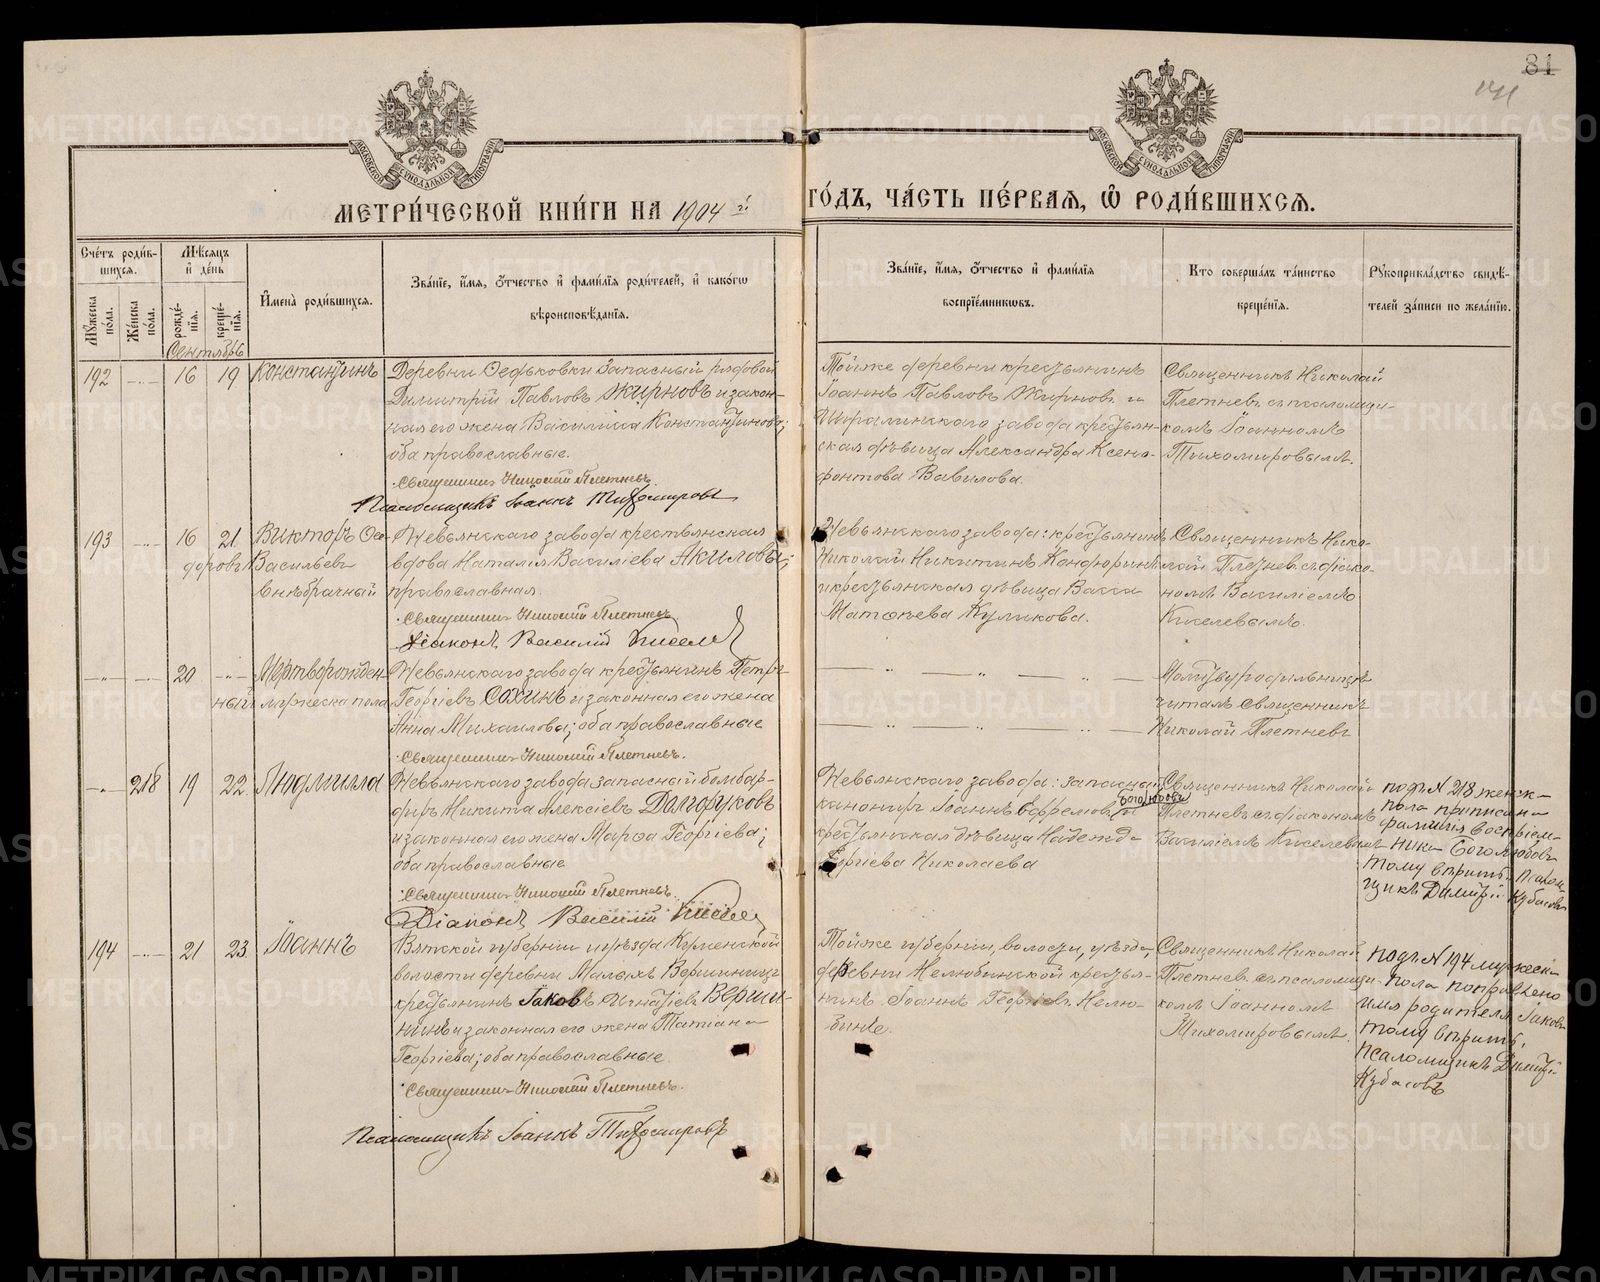 81
МОСКОВСКОЙ СѴНОДАЛЬНОЙ ТИПОГРАФІИ
МОСКОВСКОЙ СѴНОДАЛЬНОЙ ТИПОГРАФІИ
МЕТРИ́ЧЕСКОЙ КНИ́ГИ НА 1904 й
ГО́ДЪ, ЧА́СТЬ ПЕ́РВАЯ, Ѽ РОДИ́ВШИХСЯ.
Сче́тъ роди́вшихся.
Мꙋ́жеска по́ла.
Же́нска по́ла.
Мѣ́сяцъ и҆ де́нь
рожде́нїя.
креще́нїя.
И҆мена̀ роди́вшихся.
Зва́нїе, и҆́мя, ѻ҆́тчество и҆ фами́лїя роди́телей, и҆ како́гѡ
вѣроисповѣ́данїя.
Зва́нїе, и҆́мя, ѻ҆́тчество и҆ фами́лїя
воспрїе́мникѡвъ.
Кто̀ соверша́лъ та́инство
креще́нїя.
Рꙋкоприкла́дство свидѣ́-
телей за́писи по жела́нїю.
Сентябрь
192 16 19 Константинъ
Деревни Федьковки Запасный рядовой
Димитрій Павловъ Жирновъ и закон-
ная его жена Василисса Константинова;
оба православные.
Священникъ Николай Плетневъ.
Псаломщикъ Іоаннъ Тихомировъ
Тойже деревни крестьянинъ
Іоаннъ Павловъ Жирновъ и
Шуралинскаго завода крестьян-
ская дѣвица Александра Ксено-
фонтова Вавилова.
Священникъ Николай
Плетневъ съ псаломщи-
комъ Іоанномъ
Тихомировымъ.
193 16 21 Викторъ Ѳео-
доровъ Васильевъ
внѣбрачный
Невьянскаго завода крестьянская
вдова Наталія Василіева Акилова;
православная.
Священникъ Николай Плетневъ
Діаконъ Василій Киселевъ
Невьянскаго завода: крестьянинъ
Николай Никитинъ Канфоринъ
и крестьянская дѣвица Васса
Матѳеева Куликова.
Священникъ Нико-
лай Плетневъ съ діако-
номъ Василіемъ
Киселевымъ.
20 Мертворожден-
ный мужеска пола
Невьянскаго завода крестьянинъ Петръ
Георгіевъ Сохинъ и законная его жена
Анна Михаилова; оба православные
Священникъ Николай Плетневъ.
Молитву родильницѣ
читалъ священникъ
Николай Плетневъ
218 19 22 Людмилла
Невьянскаго завода запасный бомбар-
диръ Никита Алексіевъ Долгоруковъ
и законная его жена Марѳа Георгіева;
оба православные
Священникъ Николай Плетневъ.
Діаконъ Василій Киселевъ
Невьянскаго завода: запасный
канониръ Іоаннъ Ефремовъ Боголюбовъ и
крестьянская дѣвица Надежда
Георгіева Николаева
Священникъ Николай
Плетневъ съ діакономъ
Василіемъ Киселевымъ
подъ N 218 женск-
пола приписана
фамилія воспріем-
ника Боголюбовъ
тому вѣритъ Псалом-
щикъ Димитрій Кубасовъ
194 21 23 Іоаннъ
Вятской губерніи и уѣзда Куменской
волости деревни Малыхъ Вершининъ
крестьянинъ Іаковъ Игнатіевъ Верши-
нинъ и законная его жена Татіана
Георгіева; оба православные
Священникъ Николай Плетневъ.
Псаломщикъ Іоаннъ Тихомировъ
Тойже губерніи, волости, уѣзда,
деревни Нелюбинской крестья-
нинъ Іоаннъ Георгіевъ Нелю-
бинъ.
Священникъ Николай
Плетневъ съ псаломщи-
комъ Іоанномъ
Тихомировымъ.
Подъ N 194 мужеск-
пола поправлено
имя родителя Іаковъ
тому вѣритъ,
псаломщикъ Димитрій
Кубасовъ
METRIKI.GASO-URAL.RU